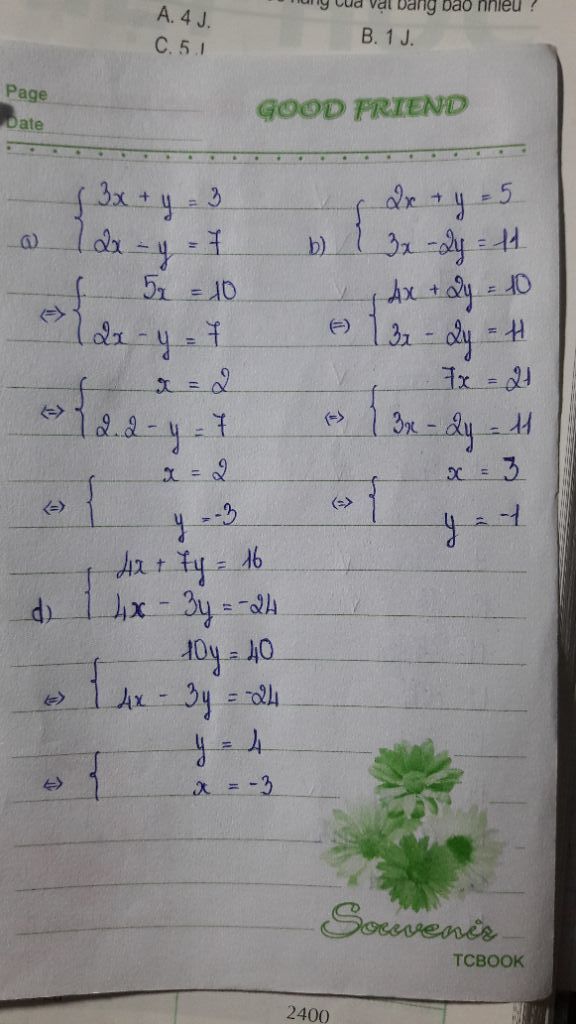 năng của vật bằng bao nhiêu ?
A. 4 J.
B. 1 J.
C. 5 J
Page
GOOD FRIEND
Date
a) { 3x + y = 3
2x - y = 7
<=> { 5x = 10
2x - y = 7
<=> { x = 2
2.2 - y = 7
<=> { x = 2
y = -3
b) { 2x + y = 5
3x - 2y = 11
(=) { 4x + 2y = 10
3x - 2y = 11
<=> { 7x = 21
3x - 2y = 11
<=> { x = 3
y = -1
d) { 4x + 7y = 16
4x - 3y = -24
<=> { 10y = 40
4x - 3y = -24
<=> { y = 4
x = -3
Souvenir
TCBOOK
2400